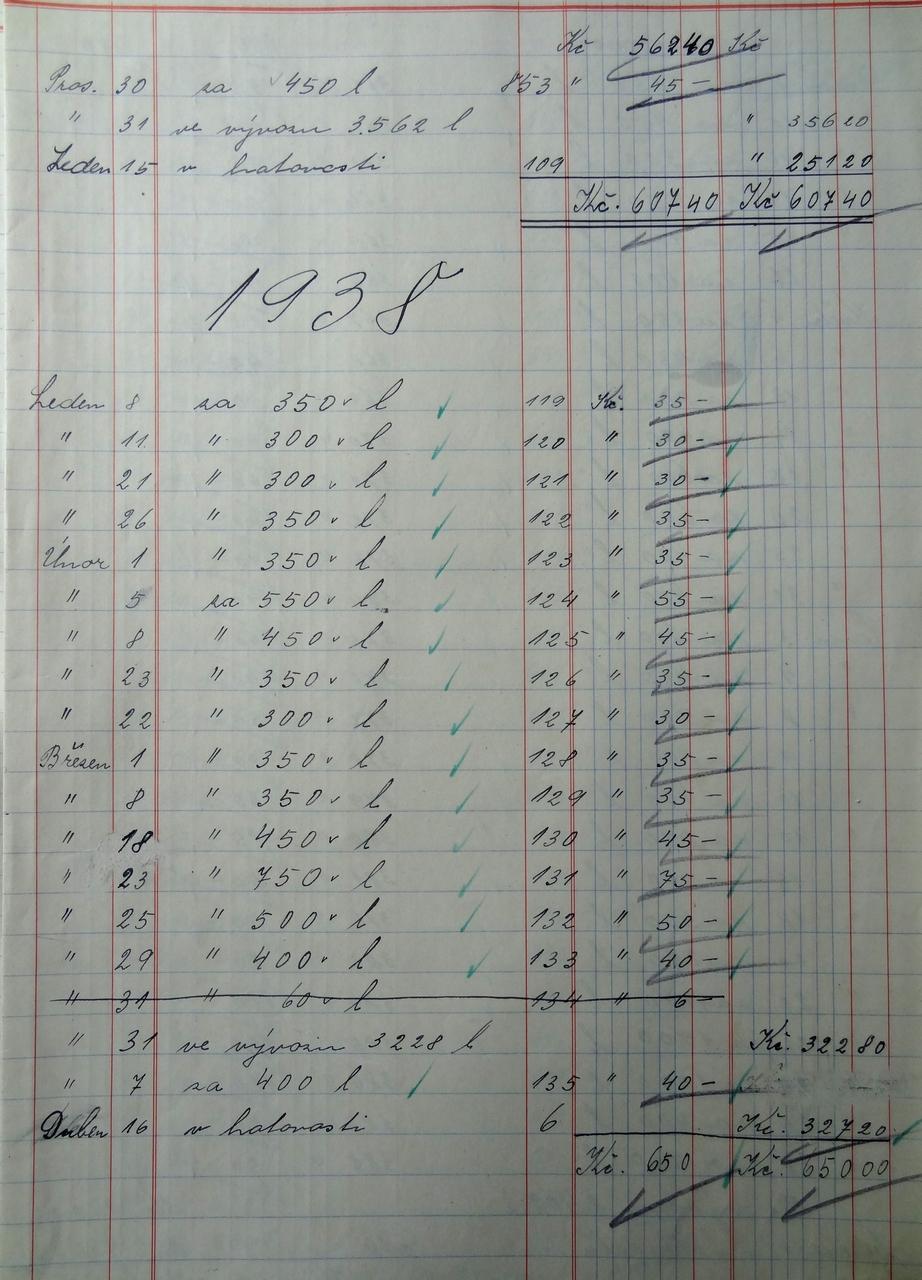 Kč 56240 Kč
Pros. 30 za 450 l 853 " 45 –
" 31 ve vývozu 3.562 l " 35620
Leden 15 v hotovosti 109 " 25120
Kč. 60740 Kč 60740
1938
Leden 8 za 350 l 119 Kč. 35 –
" 11 " 300 l 120 " 30 –
" 21 " 300 l 121 " 30 –
" 26 " 350 l 122 " 35 –
Únor 1 " 350 l 123 " 35 –
" 5 za 550 l 124 " 55 –
" 8 " 450 l 125 " 45 –
" 23 " 350 l 126 " 35 –
" 22 " 300 l 127 " 30 –
Březen 1 " 350 l 128 " 35 –
" 8 " 350 l 129 " 35 –
" 18 " 450 l 130 " 45 –
" 23 " 750 l 131 " 75 –
" 25 " 500 l 132 " 50 –
" 29 " 400 l 133 " 40 –
" 31 " 60 l 134 " 6 –
" 31 ve vývozu 3228 l Kč. 32280
" 7 za 400 l 135 " 40 –
Duben 16 v hotovosti 6 Kč. 32720
Kč. 650 Kč. 65000